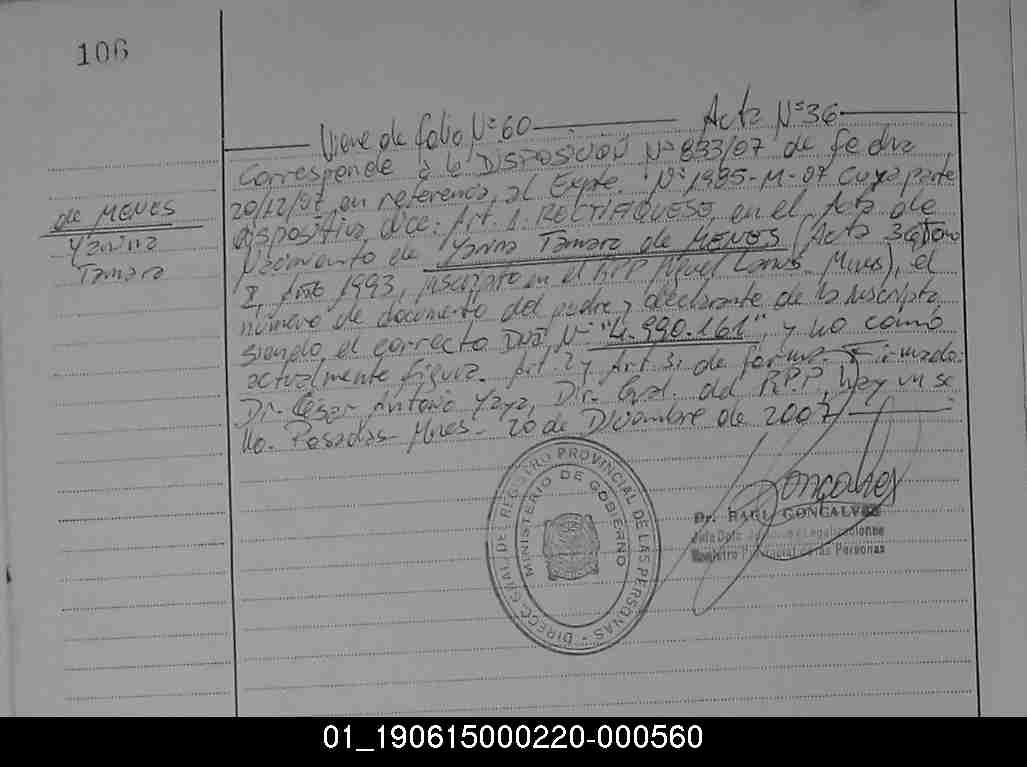 106
Viene de folio Nº 60 Acta Nº 36
Corresponde a la DISPOSICION Nº 833/07 de fecha
20/12/07 en referencia, al Expte. Nº 1985-M-07 cuya parte
dispositiva, dice: Art. 1. RECTIFIQUESE, en el Acta de
Nacimiento de Yanina Tamara de MENES (Acta 36 Tomo
I, Año 1993, inscripto en el RPP Miguel Lanus - Mnes), el
número de documento del padre y declarante de la inscripta,
siendo, el correcto DNI, Nº "4.990.161", y no como
actualmente figura. Art. 2 y Art. 3. de forma - Firmado:
Dr. César Antonio Yaya, Dir. Gral. del R.P.P, hay un se
llo. Posadas - Mnes - 20 de Diciembre de 2007
de MENES
Yanina
Tamara
DIRECC. GRAL. DEL REGISTRO PROVINCIAL DE LAS PERSONAS
MINISTERIO DE GOBIERNO
Dr. RAUL GONCALVES
Jefe Dpto. Legalizaciones
Registro Provincial de las Personas
01_190615000220-000560